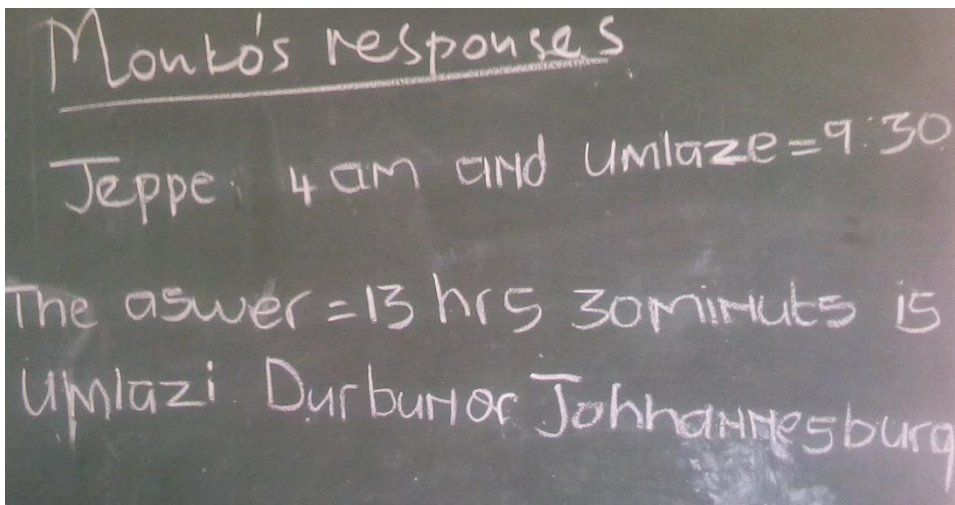 Monko's responses
Jeppe: 4 am and umlaze=9:30
The aswer=13 hrs 30minuts is
Umlazi Durbunor Johhannesburg